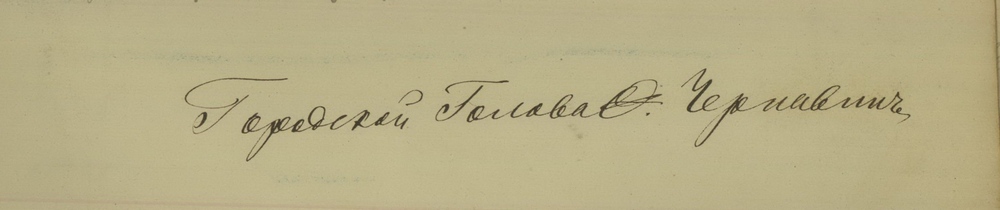 Городской Голова Ѳ. Чернавинъ